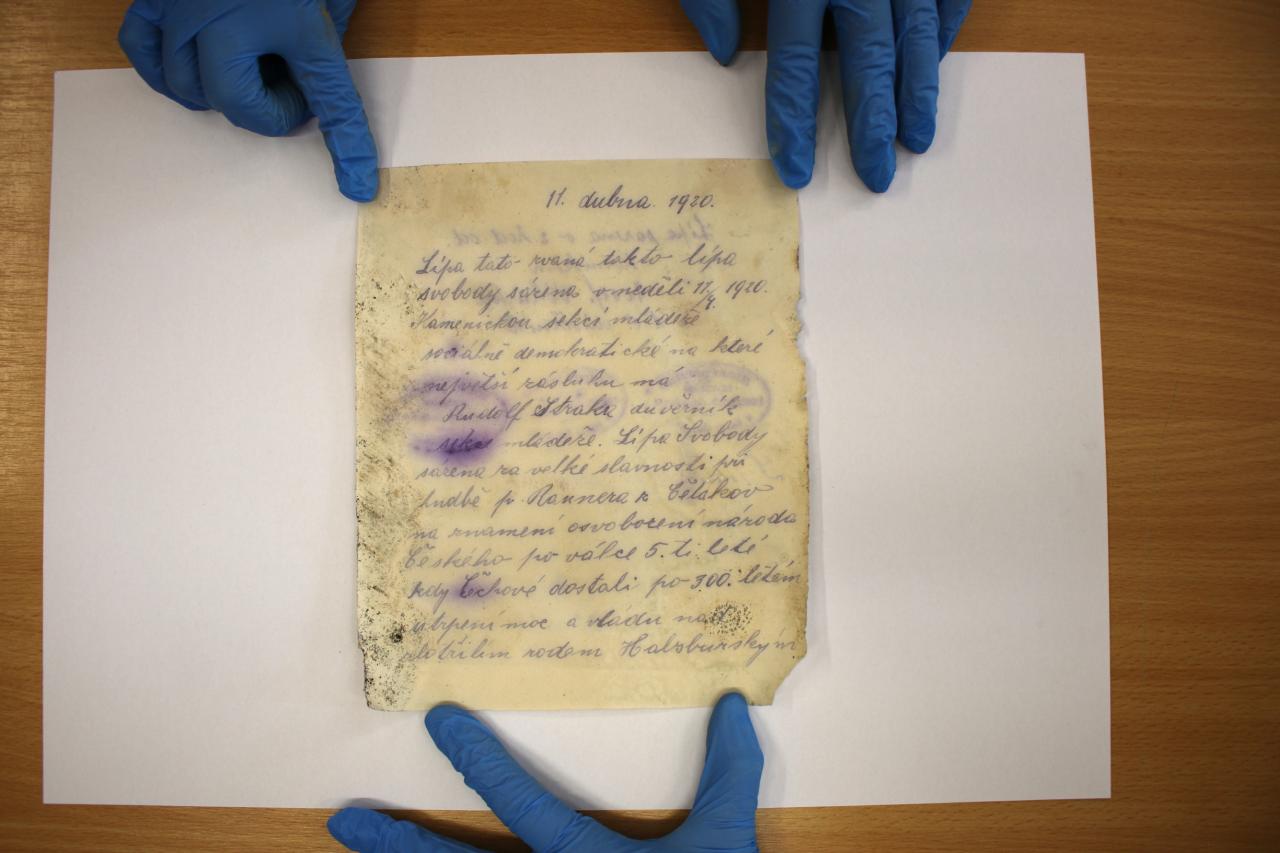 11. dubna 1920.
Lípa tato zvaná takto lípa
svobody sázena v neděli 11/4. 1920.
Kamenickou sekcí mládeže
sociálně demokratické na které
největší zásluhu má
Rudolf Straka duvěrník
sekce mládeže. Lípa Svobody
sázena za velké slavnosti při
hudbě p. Rannera z Čelákov
na znamení osvobození národa
Českého po válce 5.ti leté
kdy Čechové dostali po 300. letém
utrpení moc a vládu nad
zlotřilím rodem Habsburským